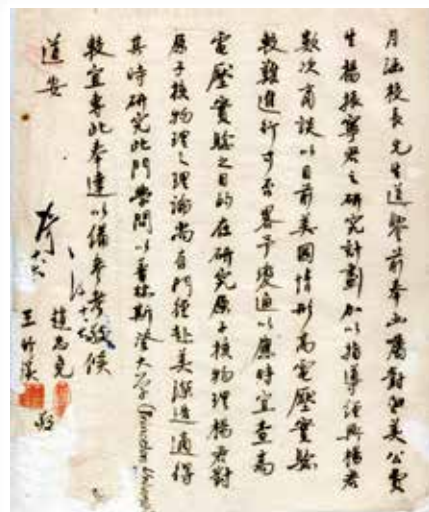 月涵校長先生道鑒前奉函屬對留美公費
生楊振寧君之研究計劃加以指導經與楊君
數次商談以目前美國情形高電壓實驗
較難進行可否畧予變通以應時宜查高
電壓實驗之目的在研究原子核物理楊君對
原子核物理之理論尚有門徑赴美深造適得
其時研究此門學問以普林斯澄大學(Princeton Univers
較宜專此奉達以備參考敬候
道安
趙忠堯
王竹溪